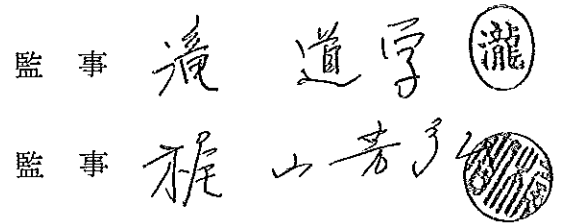 監 事 滝 道 学 瀧
監 事 梶 山 芳 弘